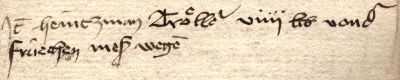 It heintzman Trölle viiii lb vonde
früechen mes wegē